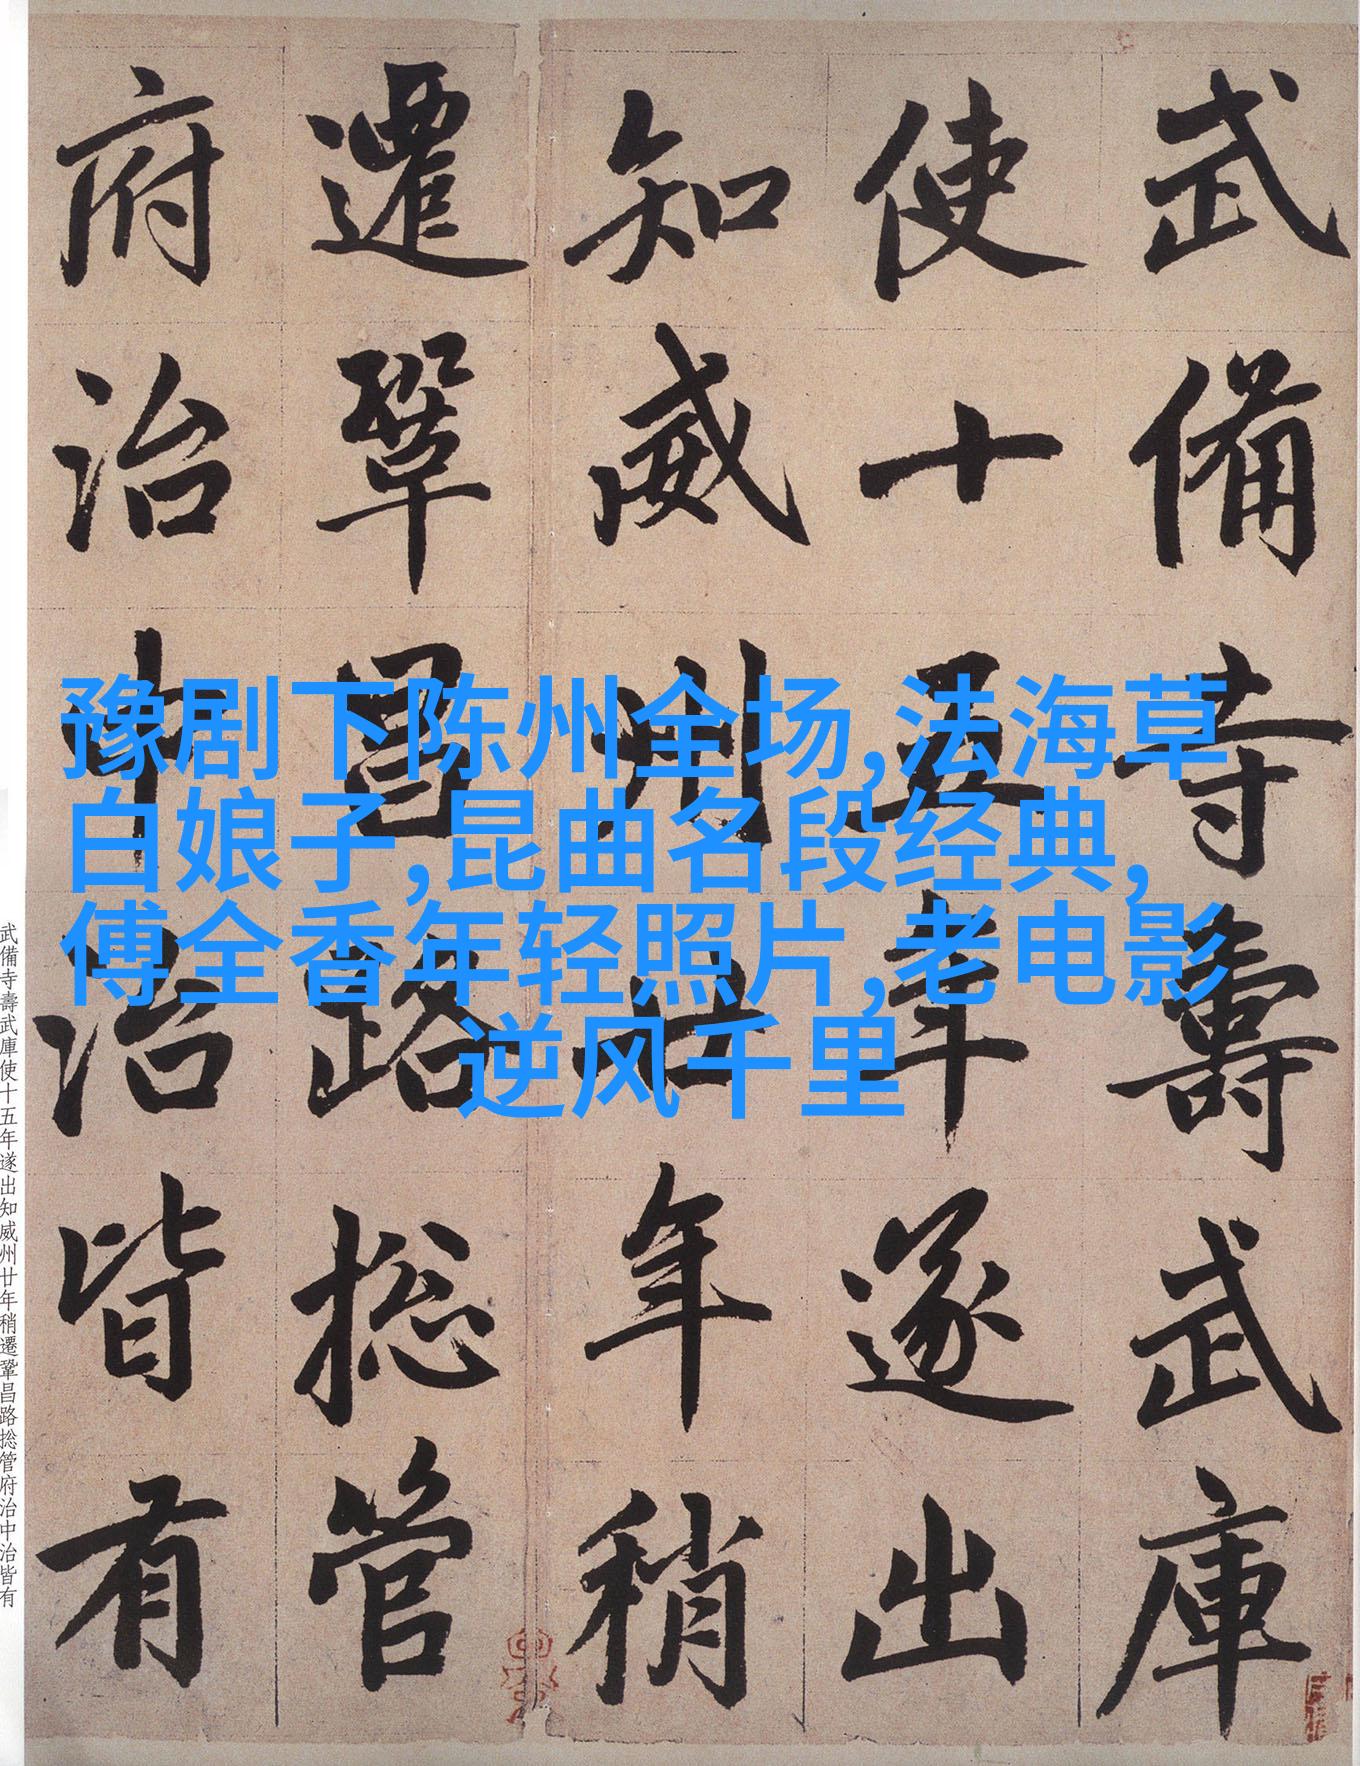 武備寺壽武庫
使十五年遂出
知威州廿年稍
遷鞏昌路捴管
府治中治皆有
豫剧下陈州全场,法海草
白娘子,昆曲名段经典,
傅全香年轻照片,老电影
逆风千里
武備寺壽武庫使十五年遂出知威州廿年稍遷鞏昌路捴管府治中治皆有